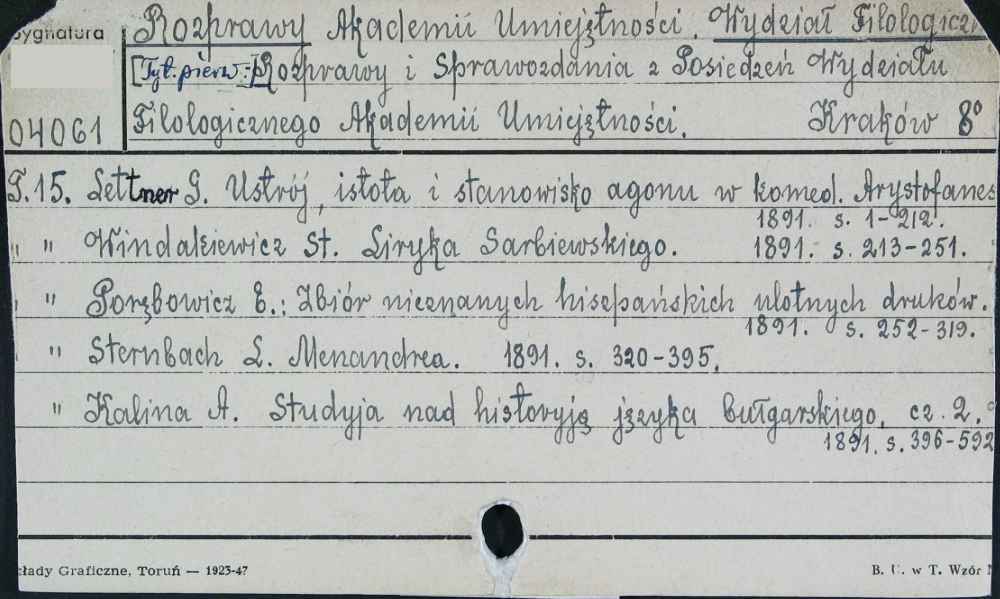 Sygnatura
04061
Rozprawy Akademii Umiejętności. Wydział Filologiczn
[Tyt. pierw.:] Rozprawy i Sprawozdania z Posiedzeń Wydziału
Filologicznego Akademii Umiejętności. Kraków 8°
T.15. Lettner G. Ustrój, istota i stanowisko agonu w komed. Arystofanes
1891. s. 1-212.
" " Windakiewicz St. Liryka Sarbiewskiego. 1891. s. 213-251.
" " Porębowicz E.: Zbiór nieznanych hiszpańskich ulotnych druków.
1891. s. 252-319.
" Sternbach L. Menandrea. 1891. s. 320-395.
" Kalina A. Studyja nad historyją języka bułgarskiego. cz. 2.
1891. s. 396-592
kłady Graficzne, Toruń — 1923-47
B. U. w T. Wzór